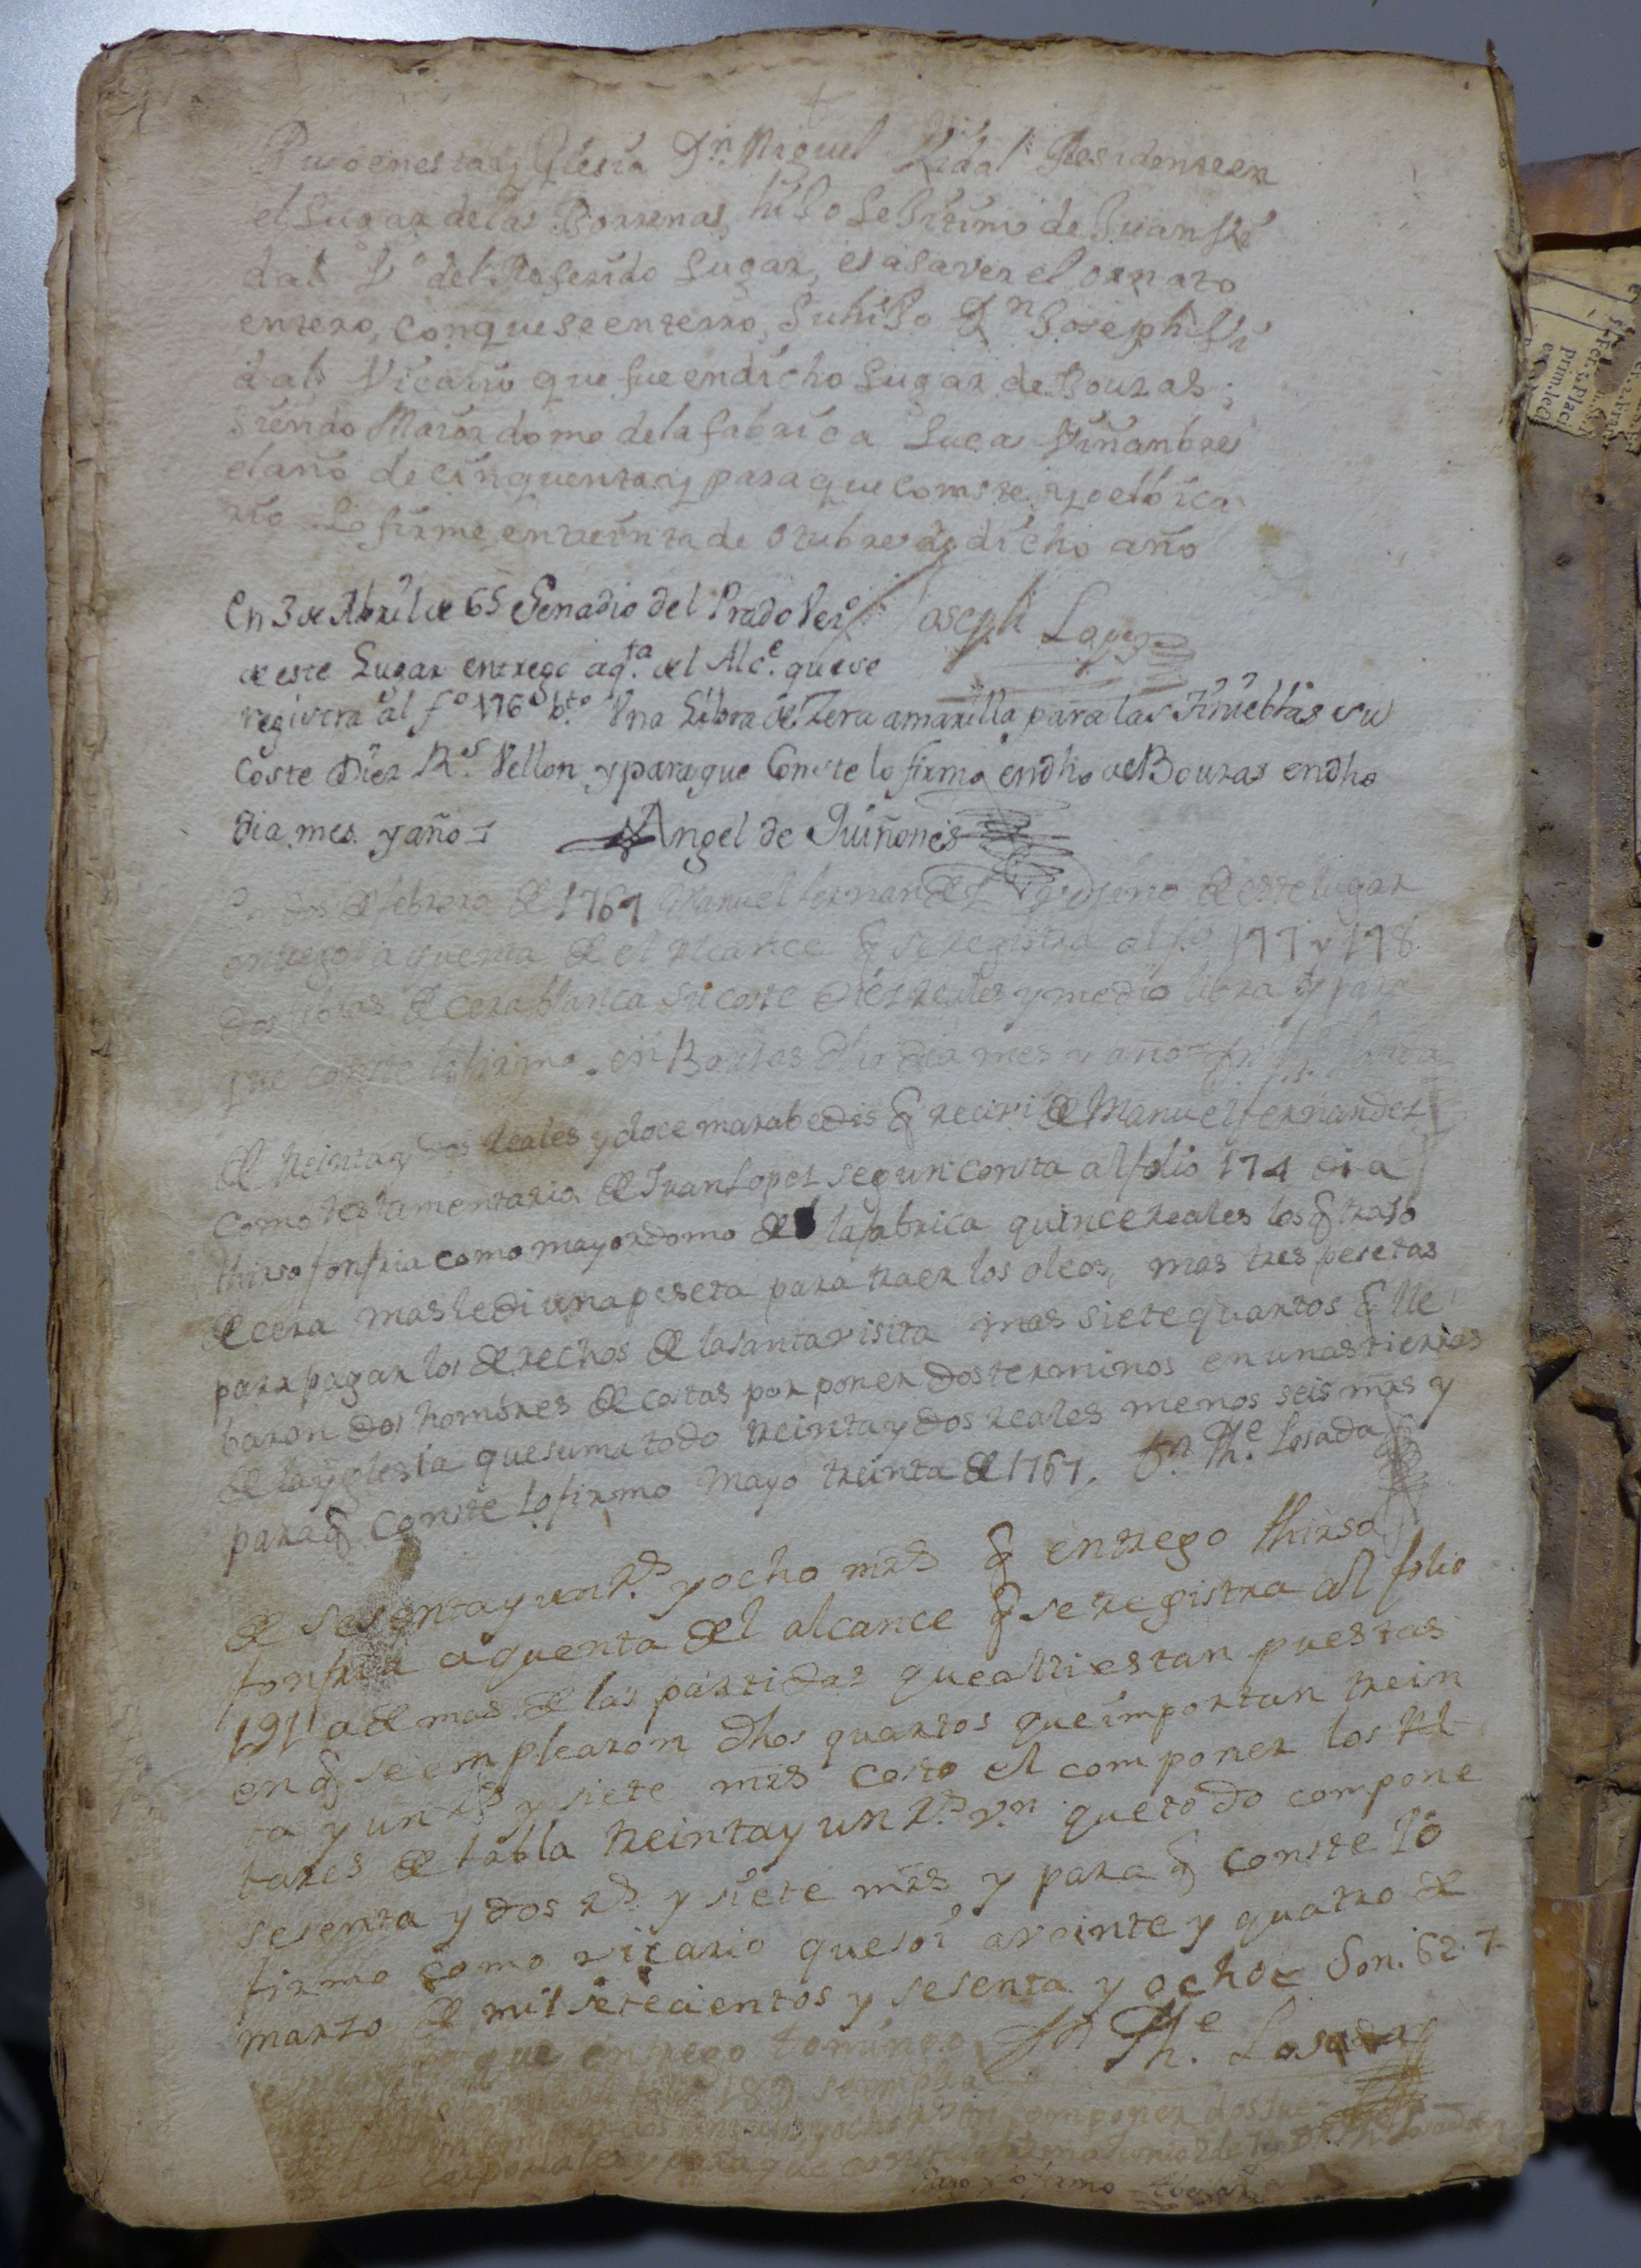 Puso en esta yglesia Dn Miguel Vidal Residente en
el lugar de las Borrenas, hiJo leJitimo de Juan Vi
dal Vº del Referido lugar, es asaver el ornato
entero, con que se enterro, su hiJo Dn Joseph Vi
dal Vicario que fue en dicho lugar de Bouzas;
siendo Maiordomo de la fabrica Lucas Viñambres
el año de cinquenta y para que conste yo el bica
rio lo firme en treinta de otubre de dicho año
Joseph Lopez
En 3 de Abril de 65 Senadio del Prado Vezº
de este Lugar entrego a qta del Alce que se
registra al fº 176 bto Una Libra de Zera amarilla para las Tinieblas su
coste Diez Rs Vellon y para que Conste lo firmo en dho de Bouzas en dho
dia mes y año = Angel de Quiñones
dos de febrero de 1767 Manuel fernandez vezino de este lugar
entrego a quenta de el alcance q se registra al fº 177 y 178
dos libras de cera blanca su coste diez reales y medio libra y para
que conste lo firmo en Bouzas dho dia mes y año
de treinta y dos reales y doce marabedis q recivi de Manuel fernandez
como testamentario de Juan Lopez segun consta al folio 174 di a
thirso fonfria como mayordomo de la fabrica quince reales los q trajo
de cera mas le di una peseta para traer los oleos, mas tres pesetas
para pagar los derechos de la santa visita mas siete quartos q lle
baron dos hombres de costas por poner dos terminos en unas tierras
de la yglesia que suma todo treinta y dos reales menos seis mrs y
para q conste lo firmo Mayo treinta de 1767. Dn Phe Losada
de sesenta y un rs y ocho mrs q entrego thirso
fonfria a quenta del alcance q se registra al folio
191 ademas de las partidas que alli estan puestas
en q se emplearon dhos quartos que importan trein
ta y un rs y siete mrs costo el componer los al
tares de tabla treinta y un rs vn que todo compone
sesenta y dos rs y siete mrs y para q conste lo
firmo como vicario que soi a veinte y quatro de
marzo de mil setecientos y sesenta y ocho = Son. 62. 7
Dn Phe Losada
que entrego Domingo
189 se emplea
y ocho rs en componer dos
de corporales y para que conste lo firmo Junio 2 de